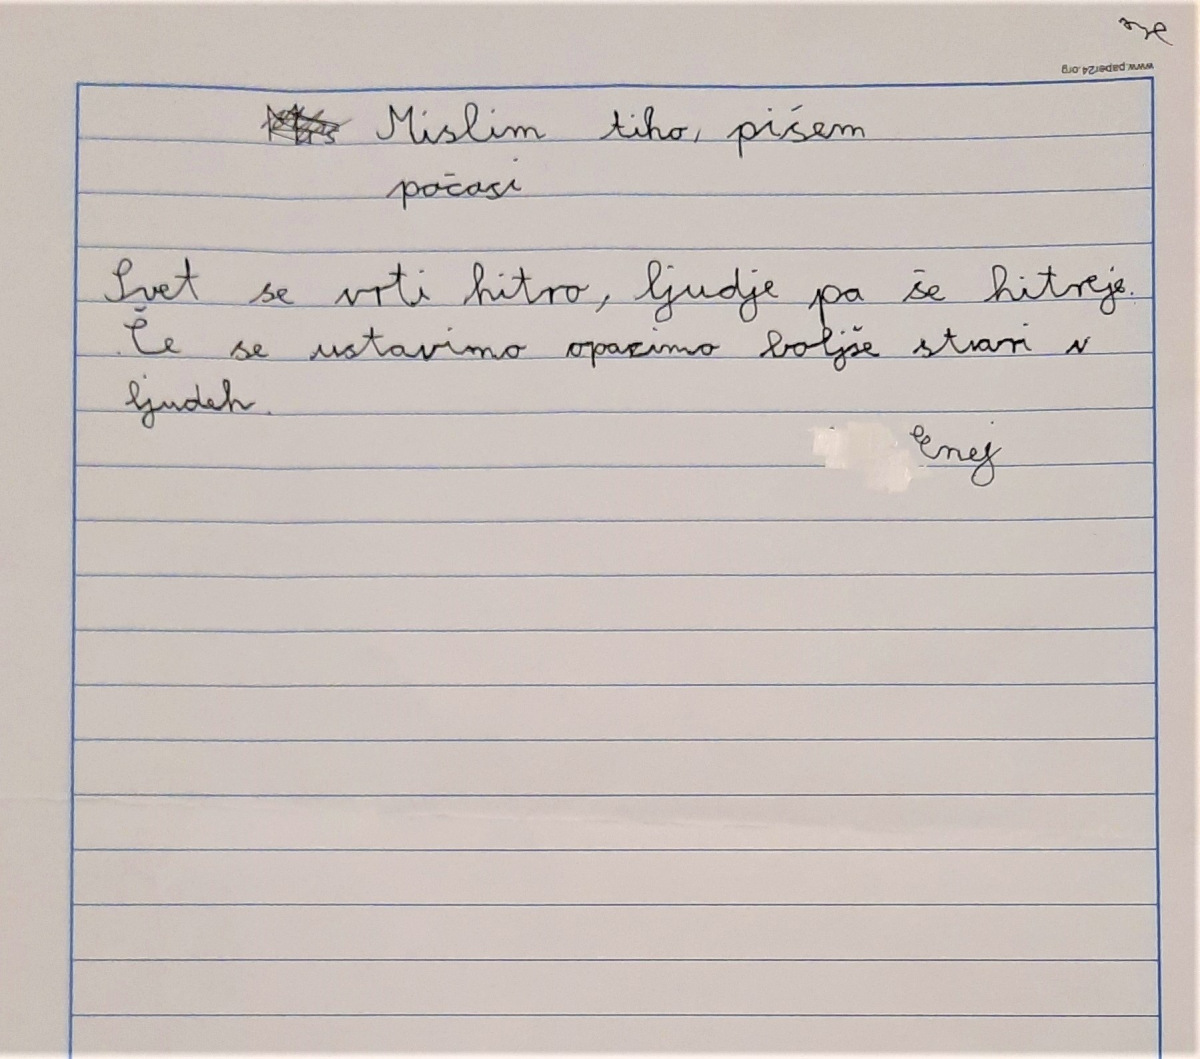 www.paper24.org
Mislim tiho, pišem
počasi
Svet se vrti hitro, ljudje pa še hitreje.
Če se ustavimo opazimo boljše stvari v
ljudeh.
Enej